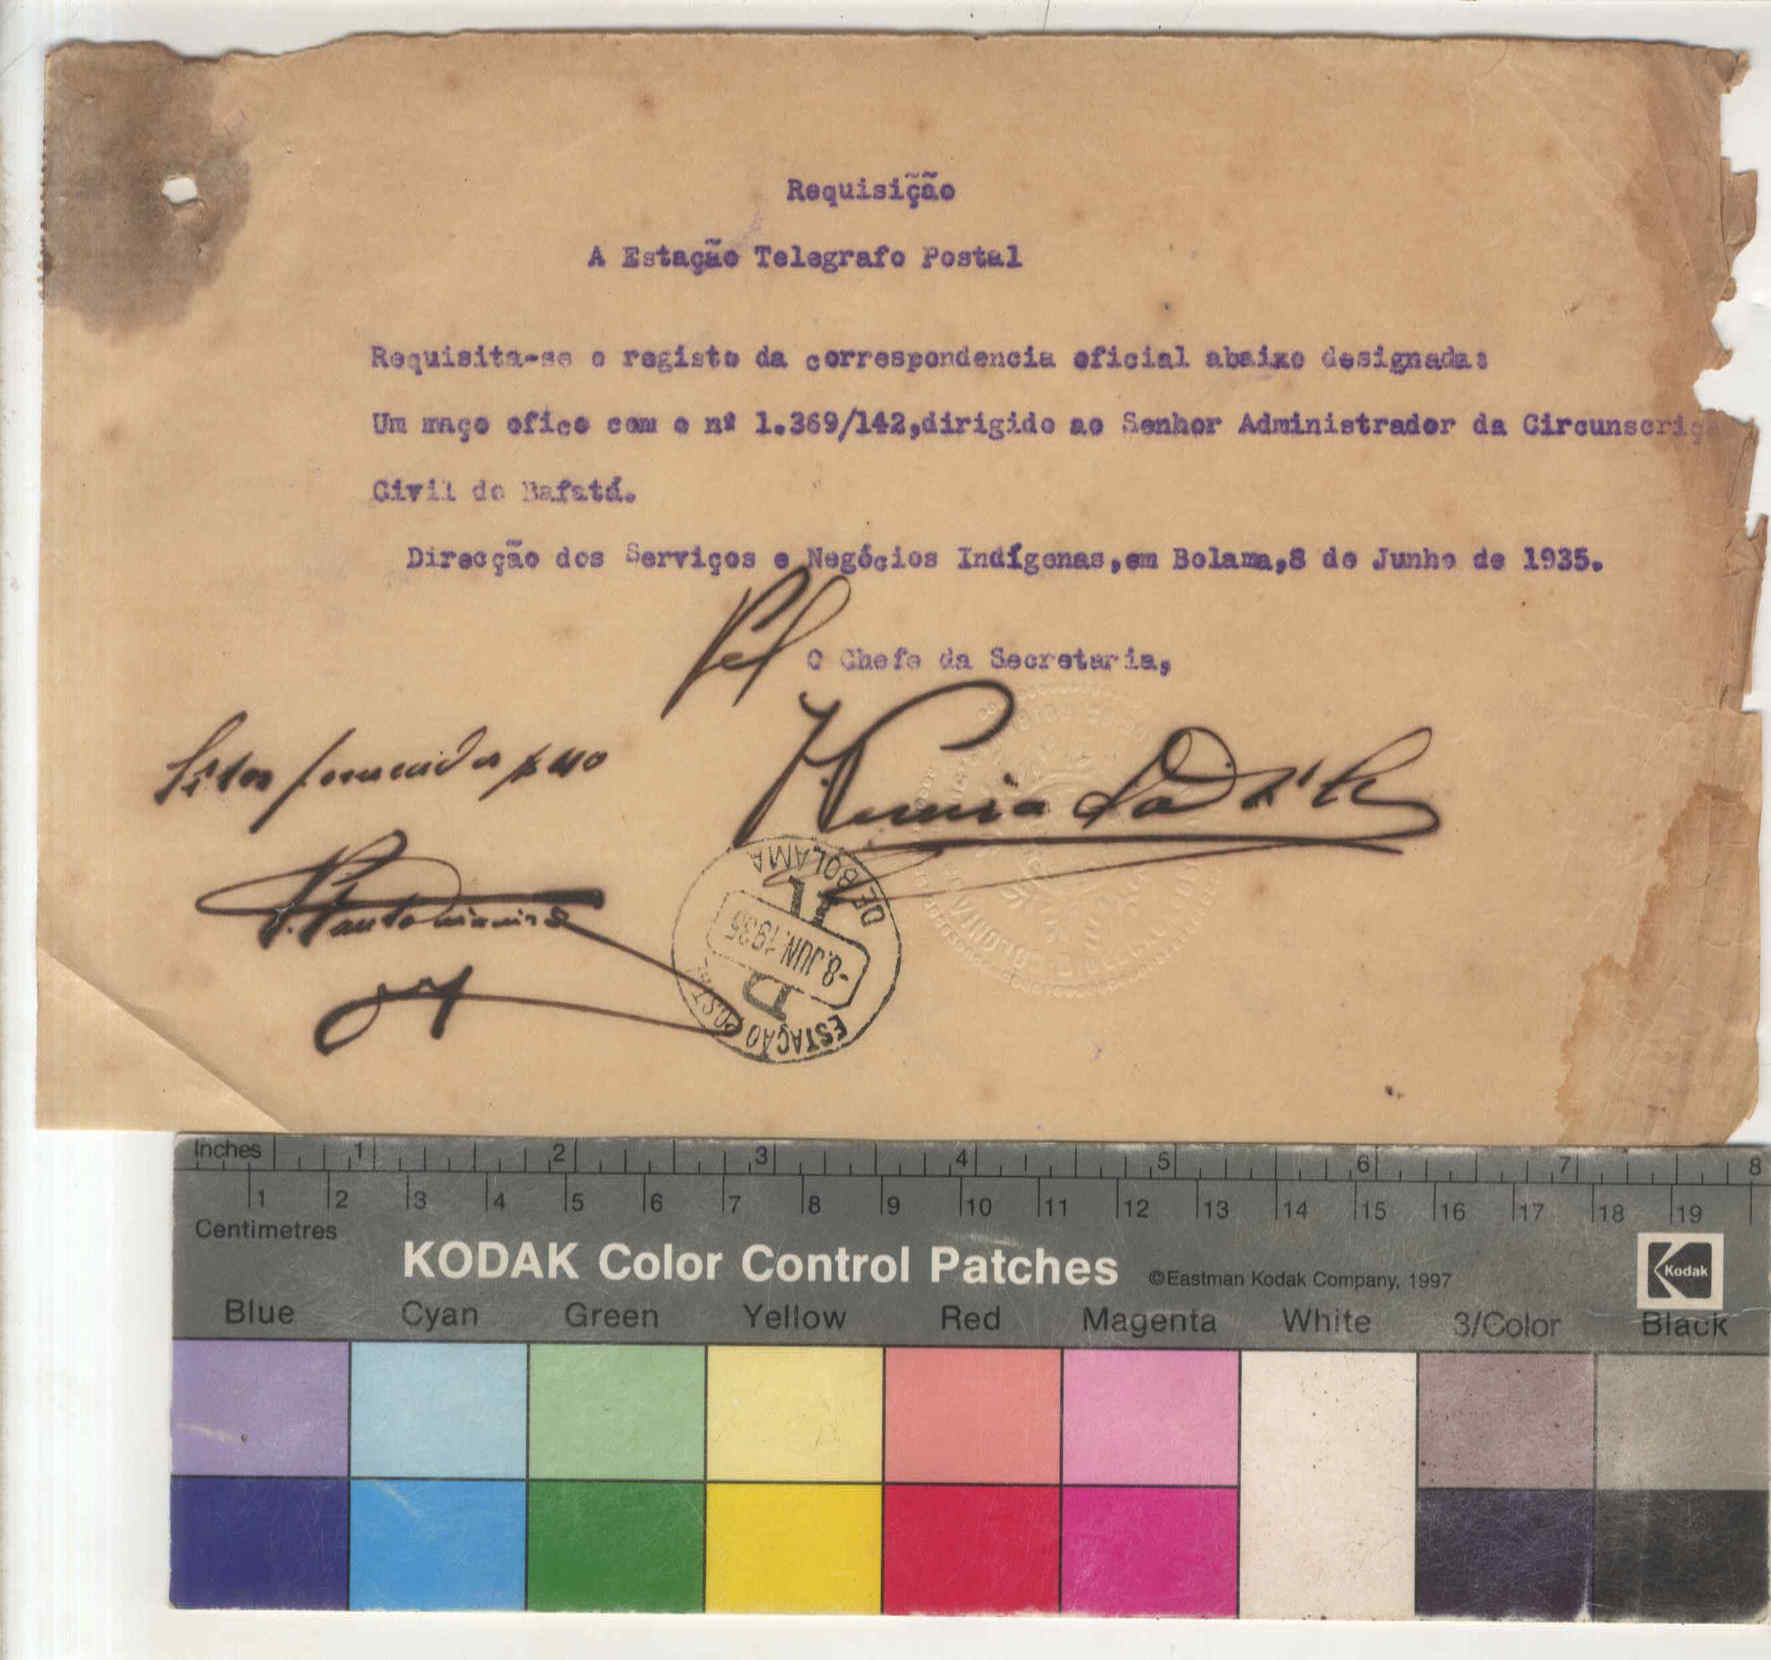 Requisição
A Estação Telegrafo Postal
Requisita-se o registo da correspondencia oficial abaixo designada:
Um maço ofico com o nº 1.369/142,dirigido ao Senhor Administrador da Circunscriç
Civil de Bafatá.
Direcção dos Serviços e Negócios Indígenas,em Bolama,8 de Junho de 1935.
Pel
O Chefe da Secretaria,
ESTAÇÃO POSTAL
-8.JUN.1935
DE BOLAMA
Inches 1 2 3 4 5 6 7 8
1 2 3 4 5 6 7 8 9 10 11 12 13 14 15 16 17 18 19
Centimetres
KODAK Color Control Patches ©Eastman Kodak Company, 1997 Kodak
Blue Cyan Green Yellow Red Magenta White 3/Color Black